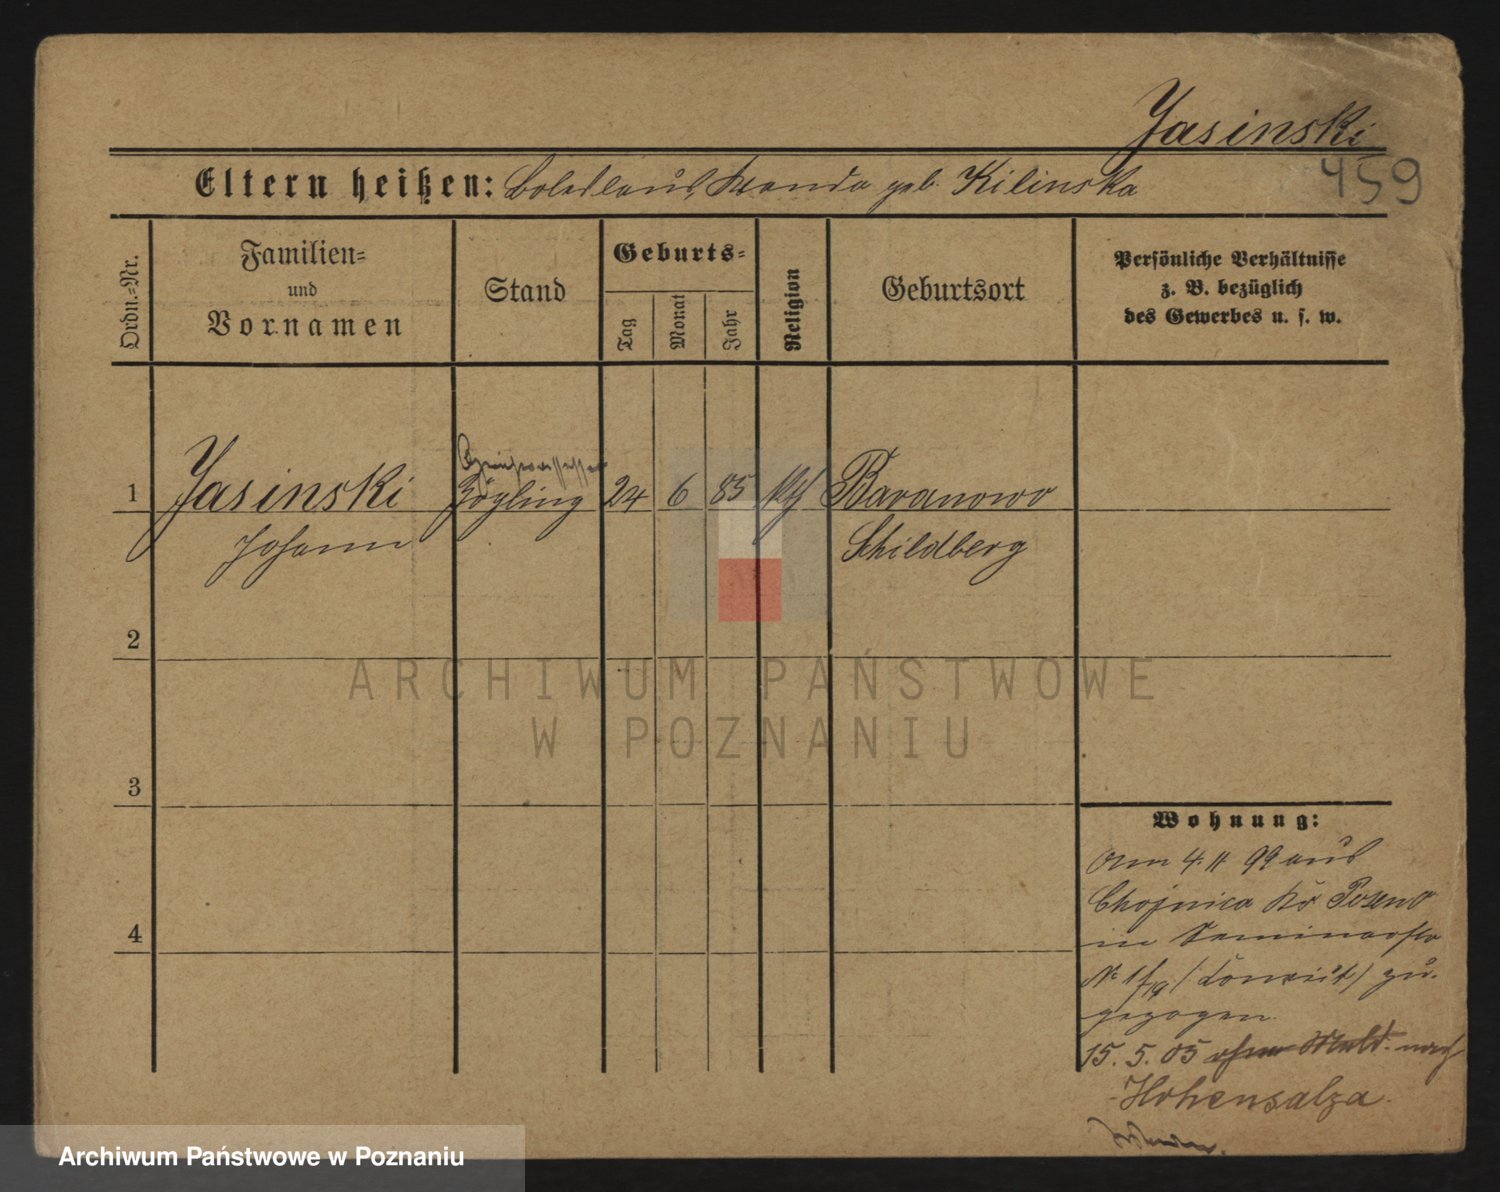 Jasinski
459
Eltern heißen: Boleslaus, Wanda geb. Kilinska
Ordn.-Nr.
Familien-
und
Vornamen
Stand
Geburts-
Tag
Monat
Jahr
Religion
Geburtsort
Persönliche Verhältnisse
z. B. bezüglich
des Gewerbes u. s. w.
1 Jasinski Zögling 24 6 85 kth Baranowo
Johann Schildberg
2
3
4
Wohnung:
Am 4. 11 99 aus
Chojnica Kr Posen O
in Seminarstr
No 1/19 (Konvikt) zu-
gezogen.
15. 5. 05 ohne Meld. nach
Hohensalza.
ARCHIWUM PAŃSTWOWE
W POZNANIU
Archiwum Państwowe w Poznaniu